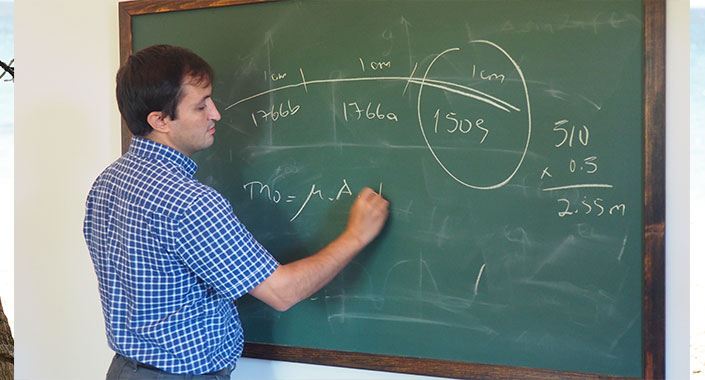 1cm 1cm 1cm
1766b 1766a 150g
510
x 0.5
2.55m
m₀ = μ.A